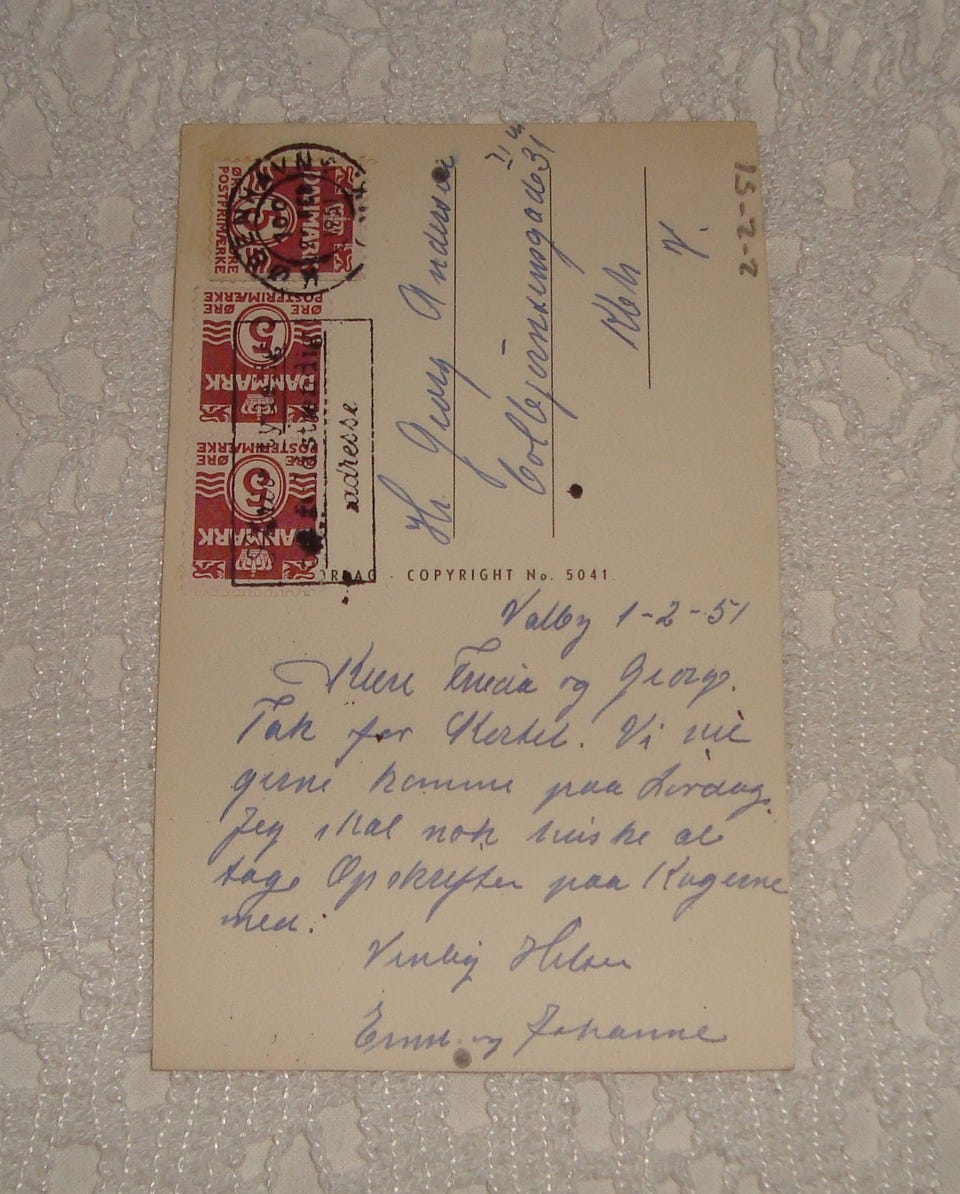 DANMARK
5
POSTFRIMÆRKE
ØRE
ØRE
POSTFRIMÆRKE
5
DANMARK
ØRE
POSTFRIMÆRKE
5
DANMARK
adresse
Hr. Georg Andersen
31
Kbh
V.
15-2-2
COPYRIGHT No. 5041
Valby 1-2-51
Kære Frieda og Georg.
Tak for Kortet. Vi vil
gerne komme paa Lørdag.
Jeg skal nok huske at
tage Opskrifter paa Kagerne
med.
Venlig Hilsen
og Johanne